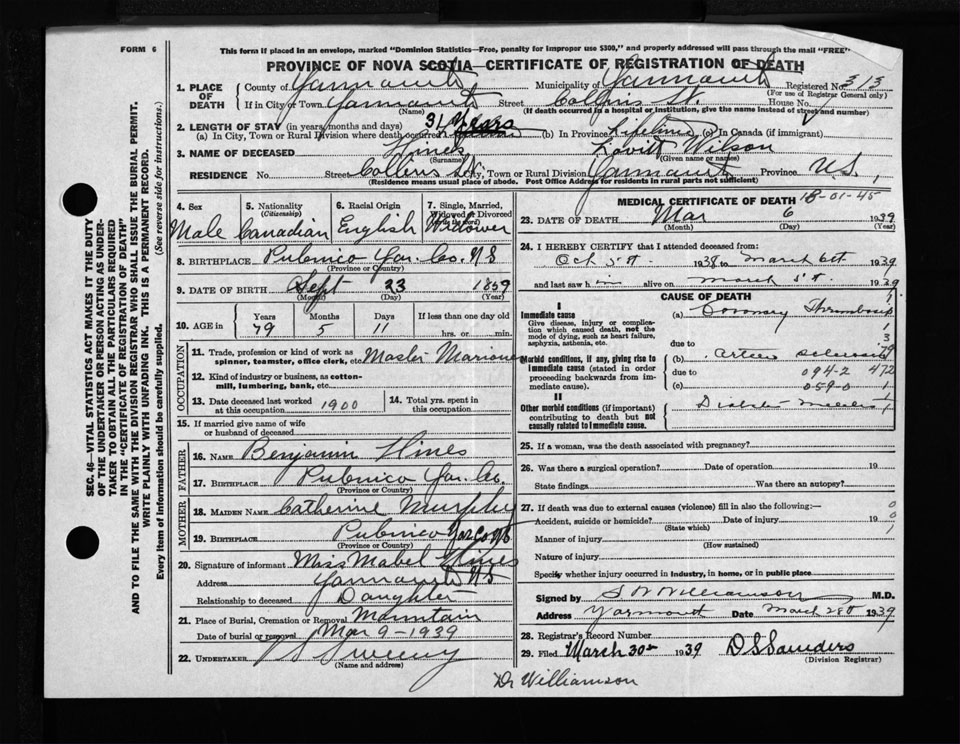 FORM 6
This form if placed in an envelope, marked "Dominion Statistics—Free, penalty for improper use $300," and properly addressed will pass through the mail "FREE"
PROVINCE OF NOVA SCOTIA—CERTIFICATE OF REGISTRATION OF DEATH
1. PLACE OF DEATH
County of Yarmouth Municipality of Yarmouth Registered No. 313
(For use of Registrar General only)
If in City or Town Yarmouth Street Collins St. House No.
(Name) (If death occurred in a hospital or institution, give the name instead of street and number)
2. LENGTH OF STAY (in years, months and days)
(a) In City, Town or Rural Division where death occurred 31 Years (b) In Province Lifetime (c) In Canada (if immigrant)
3. NAME OF DECEASED Hines Lovitt Wilson
(Surname) (Given name or names)
RESIDENCE No. Street Collins St. City, Town or Rural Division Yarmouth Province N.S.
(Residence means usual place of abode. Post Office Address for residents in rural parts not sufficient)
4. Sex Male
5. Nationality (Citizenship) Canadian
6. Racial Origin English
7. Single, Married, Widowed or Divorced Widower
8. BIRTHPLACE Pubnico Yar. Co. N S
(Province or Country)
9. DATE OF BIRTH Sept 23 1859
(Month) (Day) (Year)
10. AGE in Years Months Days If less than one day
79 5 11 hrs. or min.
OCCUPATION
11. Trade, profession or kind of work as spinner, teamster, office clerk, etc. Master Mariner
12. Kind of industry or business, as cotton-mill, lumbering, bank, etc.
13. Date deceased last worked at this occupation 1900
14. Total yrs. spent in this occupation
15. If married give name of wife or husband of deceased
FATHER
16. NAME Benjamin Hines
17. BIRTHPLACE Pubnico Yar. Co.
(Province or Country)
MOTHER
18. MAIDEN NAME Catherine Murphy
19. BIRTHPLACE Pubnico Yar Co NS
(Province or Country)
20. Signature of informant Miss Mabel Hines
Address Yarmouth NS
Relationship to deceased Daughter
21. Place of Burial, Cremation or Removal Mountain
Date of burial or removal Mar 9-1939
22. UNDERTAKER Sweeny
(Name and address)
MEDICAL CERTIFICATE OF DEATH 18-01-45
23. DATE OF DEATH Mar 6 1939
(Month) (Day) (Year)
24. I HEREBY CERTIFY that I attended deceased from:
Oct 5th 1938 to March 6th 1939
I last saw him alive on March 5th 1939
CAUSE OF DEATH
I
Immediate cause
Give disease, injury or complication which caused death, not the mode of dying, such as heart failure, asphyxia, asthenia, etc.
(a) Coronary Thrombosis
due to
Morbid conditions, if any, giving rise to immediate cause (stated in order proceeding backwards from immediate cause).
(b) Arterio sclerosis
due to 094-2 472
(c) 059-0 1
II
Other morbid conditions (if important) contributing to death but not causally related to immediate cause.
25. If a woman, was the death associated with pregnancy?
26. Was there a surgical operation? Date of operation 19
State findings Was there an autopsy?
27. If death was due to external causes (violence) fill in also the following:—
Accident, suicide or homicide? Date of injury 19
(State which)
Manner of injury
(How sustained)
Nature of injury
Specify whether injury occurred in industry, in home, or in public place
Signed by S W Williamson M.D.
Address Yarmouth Date March 28th 1939
28. Registrar's Record Number
29. Filed March 30th 1939 D S Saunders
(Division Registrar)
Dr Williamson
SEC. 46—VITAL STATISTICS ACT MAKES IT THE DUTY
OF THE UNDERTAKER OR PERSON ACTING AS UNDER-
TAKER TO OBTAIN ALL THE PARTICULARS REQUIRED
IN THE "CERTIFICATE OF REGISTRATION OF DEATH"
AND TO FILE THE SAME WITH THE DIVISION REGISTRAR WHO SHALL ISSUE THE BURIAL PERMIT.
WRITE PLAINLY WITH UNFADING INK. THIS IS A PERMANENT RECORD.
Every item of information should be carefully supplied. (See reverse side for instructions.)